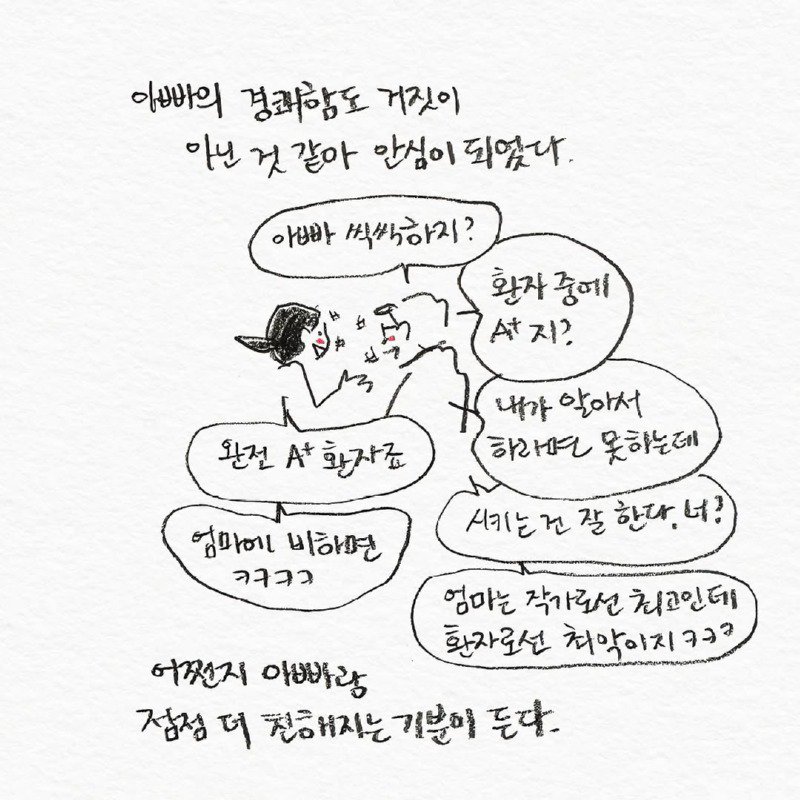 아빠의 경쾌함도 거짓이
아닌 것 같아 안심이 되었다.
아빠 씩씩하지?
환자 중에
A+ 지?
내가 알아서
하라면 못하는데
시키는 건 잘 한다. 너?
완전 A+ 환자죠
엄마에 비하면
ㅋㅋㅋㅋ
엄마는 작가로선 최고인데
환자로선 최악이지 ㅋㅋㅋ
어쩐지 아빠랑
점점 더 친해지는 기분이 든다.